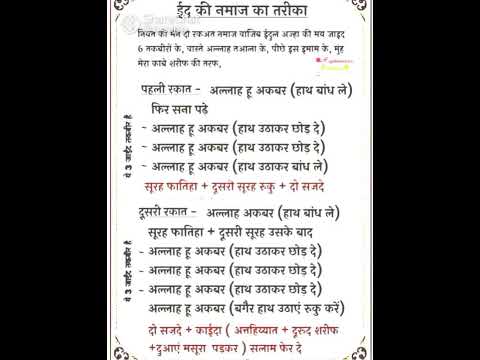 ShareChat
ईद की नमाज का तरीका
नियत की मैने दो रकअत नमाज वाजिब ईदुल अज्हा की मय जाइद
6 तकबीरों के, वास्ते अल्लाह तआला के, पीछे इस इमाम के, मुंह
मेरा काबे शरीफ की तरफ,
पहली रकात - अल्लाह हू अकबर (हाथ बांध ले)
फिर सना पढे
~ अल्लाह हू अकबर (हाथ उठाकर छोड दे)
~ अल्लाह हू अकबर (हाथ उठाकर छोड दे)
~ अल्लाह हू अकबर (हाथ उठाकर बांध ले)
ये 3 जाईद तकबीर है
सूरह फातिहा + दूसरी सूरह रुकु + दो सजदे
दूसरी रकात - अल्लाह हू अकबर (हाथ बांध ले)
सूरह फातिहा + दूसरी सूरह उसके बाद
~ अल्लाह हू अकबर (हाथ उठाकर छोड दे)
~ अल्लाह हू अकबर (हाथ उठाकर छोड दे)
~ अल्लाह हू अकबर (हाथ उठाकर छोड दे)
अल्लाह हू अकबर (बगैर हाथ उठाएं रुकु करें)
ये 3 जाईद तकबीर है
दो सजदे + काईदा ( अत्तहिय्यात + दुरुद शरीफ
+दुआएं मसूरा पडकर ) सलाम फेर दे